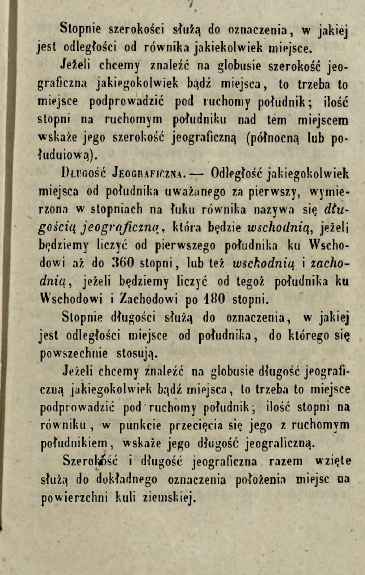 Stopnie szerokości służą do oznaczenia, w jakiej
jest odległości od równika jakiekolwiek miejsce.
Jeżeli chcemy znaleźć na globusie szerokość jeo-
graficzna jakiegokolwiek bądź miejsca, to trzeba to
miejsce podprowadzić pod ruchomy południk; ilość
stopni na ruchomym południku nad tem miejscem
wskaże jego szerokość jeograficzną (północną lub po-
łuduiową).
Długość Jeograficzna. — Odległość jakiegokolwiek
miejsca od południka uważanego za pierwszy, wymie-
rzona w stopniach na łuku równika nazywa się dłu-
gością jeograficzną, która będzie wschodnią, jeżeli
będziemy liczyć od pierwszego południka ku Wscho-
dowi aż do 360 stopni, lub też wschodnią i zacho-
dnią, jeżeli będziemy liczyć od tegoż południka ku
Wschodowi i Zachodowi po 180 stopni.
Stopnie długości służą do oznaczenia, w jakiej
jest odległości miejsce od południka, do którego się
powszechnie stosują.
Jeżeli chcemy znaleźć na globusie długość jeografi-
czną jakiegokolwiek bądź miejsca, to trzeba to miejsce
podprowadzić pod ruchomy południk; ilość stopni na
równiku, w punkcie przecięcia się jego z ruchomym
południkiem, wskaże jego długość jeograficzną.
Szerokość i długość jeograficzna razem wzięte
służą do dokładnego oznaczenia położenia miejsc na
powierzchni kuli ziemskiej.